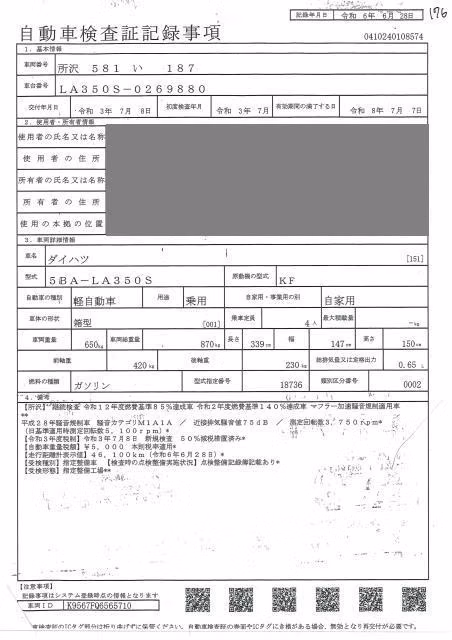 176
記録年月日 令和 6年 6月 28日
自動車検査証記録事項
0410240108574
1. 基本情報
車両番号 所沢 581 い 187
車台番号 LA350S-0269880
交付年月日 令和 3年 7月 8日 初度検査年月 令和 3年 7月 有効期間の満了する日 令和 8年 7月 7日
2. 使用者・所有者情報
使用者の氏名又は名称
使用者の住所
所有者の氏名又は名称
所有者の住所
使用の本拠の位置
3. 車両詳細情報
車名 ダイハツ [151]
型式 5BA-LA350S 原動機の型式 KF
自動車の種別 軽自動車 用途 乗用 自家用・事業用の別 自家用
車体の形状 箱型 [001] 乗車定員 4人 最大積載量 -kg
車両重量 650kg 車両総重量 870kg 長さ 339cm 幅 147cm 高さ 150cm
前軸重 420kg 後軸重 230kg 総排気量又は定格出力 0.65 L
燃料の種類 ガソリン 型式指定番号 18736 類別区分番号 0002
4. 備考
【所沢】継続検査 令和12年度燃費基準85%達成車 令和2年度燃費基準140%達成車 マフラー加速騒音規制適用車
**
平成28年騒音規制車 騒音カテゴリM1A1A / 近接排気騒音値75dB / 測定回転数3,750rpm*
(旧基準適用時測定回転数5,100rpm) *
【令和3年度税制】令和3年7月8日 新規検査 50%減税措置済み*
【自動車重量税額】¥5,000 本則税率適用*
【走行距離計表示値】46,100km(令和6年6月28日)*
【受検種別】指定整備車 【検査時の点検整備実施状況】点検整備記録簿記載あり*
【受検形態】指定整備工場*
【注意事項】
記録事項はシステム登録時点の情報となります
車両ID K9567PQ6565710
車検査証のICタグ部分は折り曲げずに保管ください。自動車検査証の券面やICタグに合格がある場合、無効となり再交付が必要です。